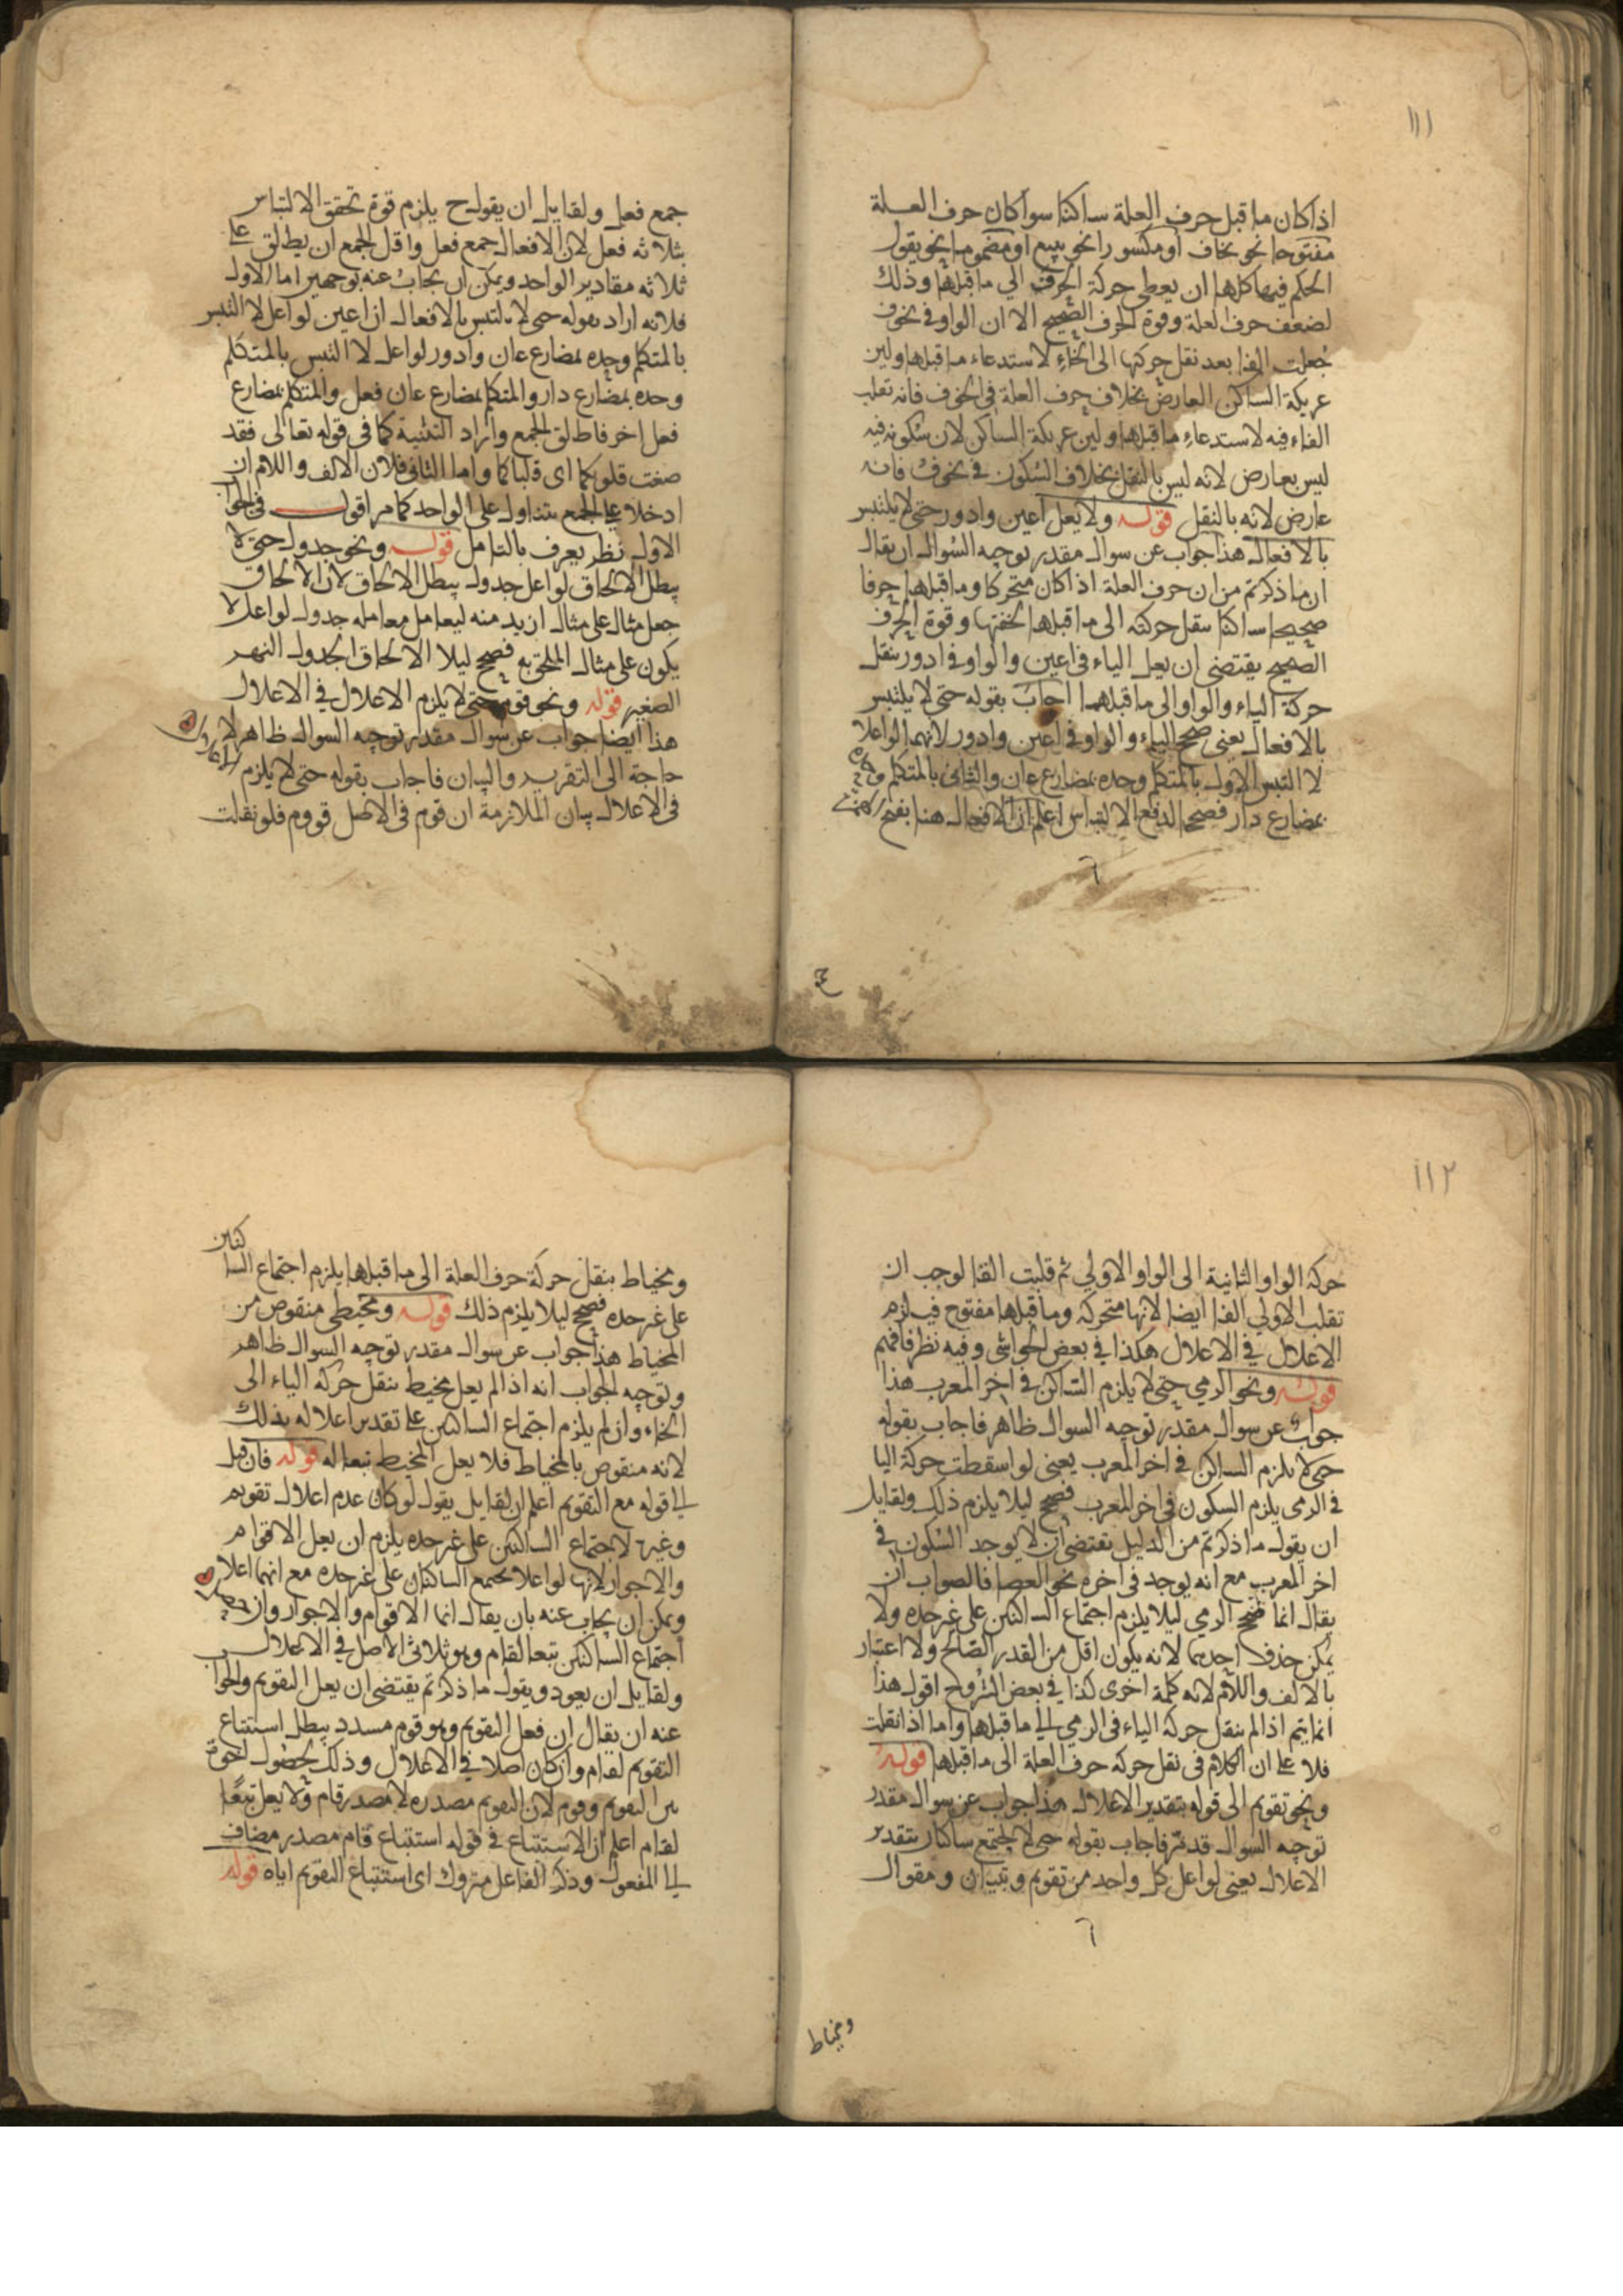 ١١١
اذا كان ما قبل حرف العلة ساكنا سوا كان حرف العلة
مفتوحا نحو يخاف او مكسورا نحو يبيع او مضموما نحو يقول
الحكم فيها كلها ان يعطى حركة الحرف الي ما قبلها وذلك
لضعف حرف العلة وقوة الحرف الصحيح الا ان الواو في يخوف
جعلت الفا بعد نقل حركتها الى الخاء لاستدعاء ما قبلها ولين
عريكة الساكن العارض بخلاف حرف العلة في الخوف فانه تقلب
الفاء فيه لاستدعاء ما قبلها ولين عريكة الساكن لان سكونه فيه
ليس بعارض لانه ليس بالنقل بخلاف السكون في يخوف فانه
عارض لانه بالنقل قوله ولا يعل اعين وادور حتى لا يلتبس
بالافعال هذا جواب عن سوال مقدر توجيه السوال ان يقال
ان ما ذكرتم من ان حرف العلة اذا كان متحركا وما قبلها حرفا
صحيحا ساكنا ينقل حركته الى ما قبلها لخفتها وقوة الحرف
الصحيح يقتضى ان يعل الياء في اعين والواو في ادور بنقل
حركة الياء والواو الى ما قبلهما اجاب بقوله حتى لا يلتبس
بالافعال يعنى صح الياء والواو في اعين وادور لانهما لو اعلا
لا التبس الاول بالمتكلم وحده بمضارع عان والثانى بالمتكلم وحده
بمضارع دار فصح الدفع الالتباس اعلم ان الافعال هنا بفتح الهمزة
جمع فعل ولقايل ان يقول ح يلزم قوة تحقق الالتباس
بثلاثه فعل لان الافعال جمع فعل واقل الجمع ان يطلق على
ثلاثه مقادير الواحد ويمكن ان يجاب عنه بوجهين اما الاول
فلانه اراد بقوله حتى لا يلتبس بالافعال ان اعين لو اعل لا التبس
بالمتكلم وحده بمضارع عان وادور لو اعل لا التبس بالمتكلم
وحده بمضارع دار والمتكلم بمضارع عان فعل والمتكلم بمضارع
فعل اخر فاطلق الجمع واراد التثنية كما في قوله تعالى فقد
صغت قلوبكما اى قلباكما واما الثانى فلان الالف واللام ان
ادخلا على الجمع يتناول على الواحد كما مر اقول في الجواب
الاول نظر يعرف بالتامل قوله ونحو جدول حتى لا
يبطل الالحاق لو اعل جدول يبطل الالحاق لان الالحاق
جعل مثال على مثال ازيد منه ليعامل معامله جدول لو اعل لا
يكون على مثال الملحق به فصح ليلا الالحاق الجدول النهر
الصغير قوله ونحو قوم حتى لا يلزم الاعلال في الاعلال
هذا ايضا جواب عن سوال مقدر توجيه السوال ظاهر لا
حاجة الى التقرير والبيان فاجاب بقوله حتى لا يلزم الاعلال
في الاعلال بيان الملازمة ان قوم في الاصل قووم فلو نقلت
١١٢
حركه الواو الثانية الى الواو الاولي ثم قلبت الفا لوجب ان
تقلب الاولي الفا ايضا لانها متحركه وما قبلها مفتوح فيلزم
الاعلال في الاعلال هكذا في بعض الحواشى وفيه نظر فافهم
قوله ونحو الرمي حتى لا يلزم الساكن في اخر المعرب هذا
جواب عن سوال مقدر توجيه السوال ظاهر فاجاب بقوله
حتى لا يلزم الساكن في اخر المعرب يعنى لو اسقطت حركة اليا
في الرمى يلزم السكون في اخر المعرب فصح ليلا يلزم ذلك ولقايل
ان يقول ما ذكرتم من الدليل يقتضى ان لا يوجد السكون في
اخر المعرب مع انه يوجد في اخره نحو العصا فالصواب ان
يقال انما صح الرمي ليلا يلزم اجتماع الساكنين على غير حده ولا
يمكن حذف احديهما لانه يكون اقل من القدر الصالح ولا اعتبار
بالالف واللام لانه كلمة اخرى كذا في بعض الشروح اقول هذا
انما يتم اذا لم ينقل حركة الياء في الرمي الى ما قبلها واما اذا نقلت
فلا على ان الكلام في نقل حركه حرف العلة الى ما قبلها قوله
ونحو تقويم الى قوله بتقدير الاعلال هذا جواب عن سوال مقدر
توجيه السوال قد مر فاجاب بقوله حتى لا يجتمع ساكنان بتقدير
الاعلال يعنى لو اعل كل واحد من تقويم وتبيان ومقوال
ومخياط
ومخياط بنقل حركة حرف العلة الى ما قبلها يلزم اجتماع الساكنين
على غير حده فصح ليلا يلزم ذلك قوله ومخيط منقوص من
المخياط هذا جواب عن سوال مقدر توجيه السوال ظاهر
وتوجيه الجواب انه اذا لم يعل مخيط بنقل حركة الياء الى
الخاء وان لم يلزم اجتماع الساكنين على تقدير اعلاله بذلك
لانه منقوص بالمخياط فلا يعل المخيط تبعا له قوله فان قيل
الى قوله مع التقويم اعلم ان لقايل يقول لو كان عدم اعلال تقويم
وغيره لاجتماع الساكنين على غير حده يلزم ان يعل الاقوام
والاجوار لانها لو اعلا يجتمع الساكنان على غير حده مع انهما اعلا
ويمكن ان يجاب عنه بان يقال انما الاقوام والاجوار وان
اجتماع الساكنين تبعا لقام وهو ثلاثى الاصل في الاعلال
ولقايل ان يعود ويقول ما ذكرتم يقتضى ان يعل التقويم والجواب
عنه ان يقال ان فعل التقويم وهو قوم مسدد يبطل استتباع
التقويم لقام وان كان اصلا في الاعلال وذلك لحصول اخوة
بين التقويم وقوم لان التقويم مصدره لا مصدر قام ولا يعل تبعا
لقام اعلم ان الاستتباع في قوله استتباع قام مصدر مضاف
الى المفعول وذكر الفاعل متروك اى استتباع التقويم اياه قوله